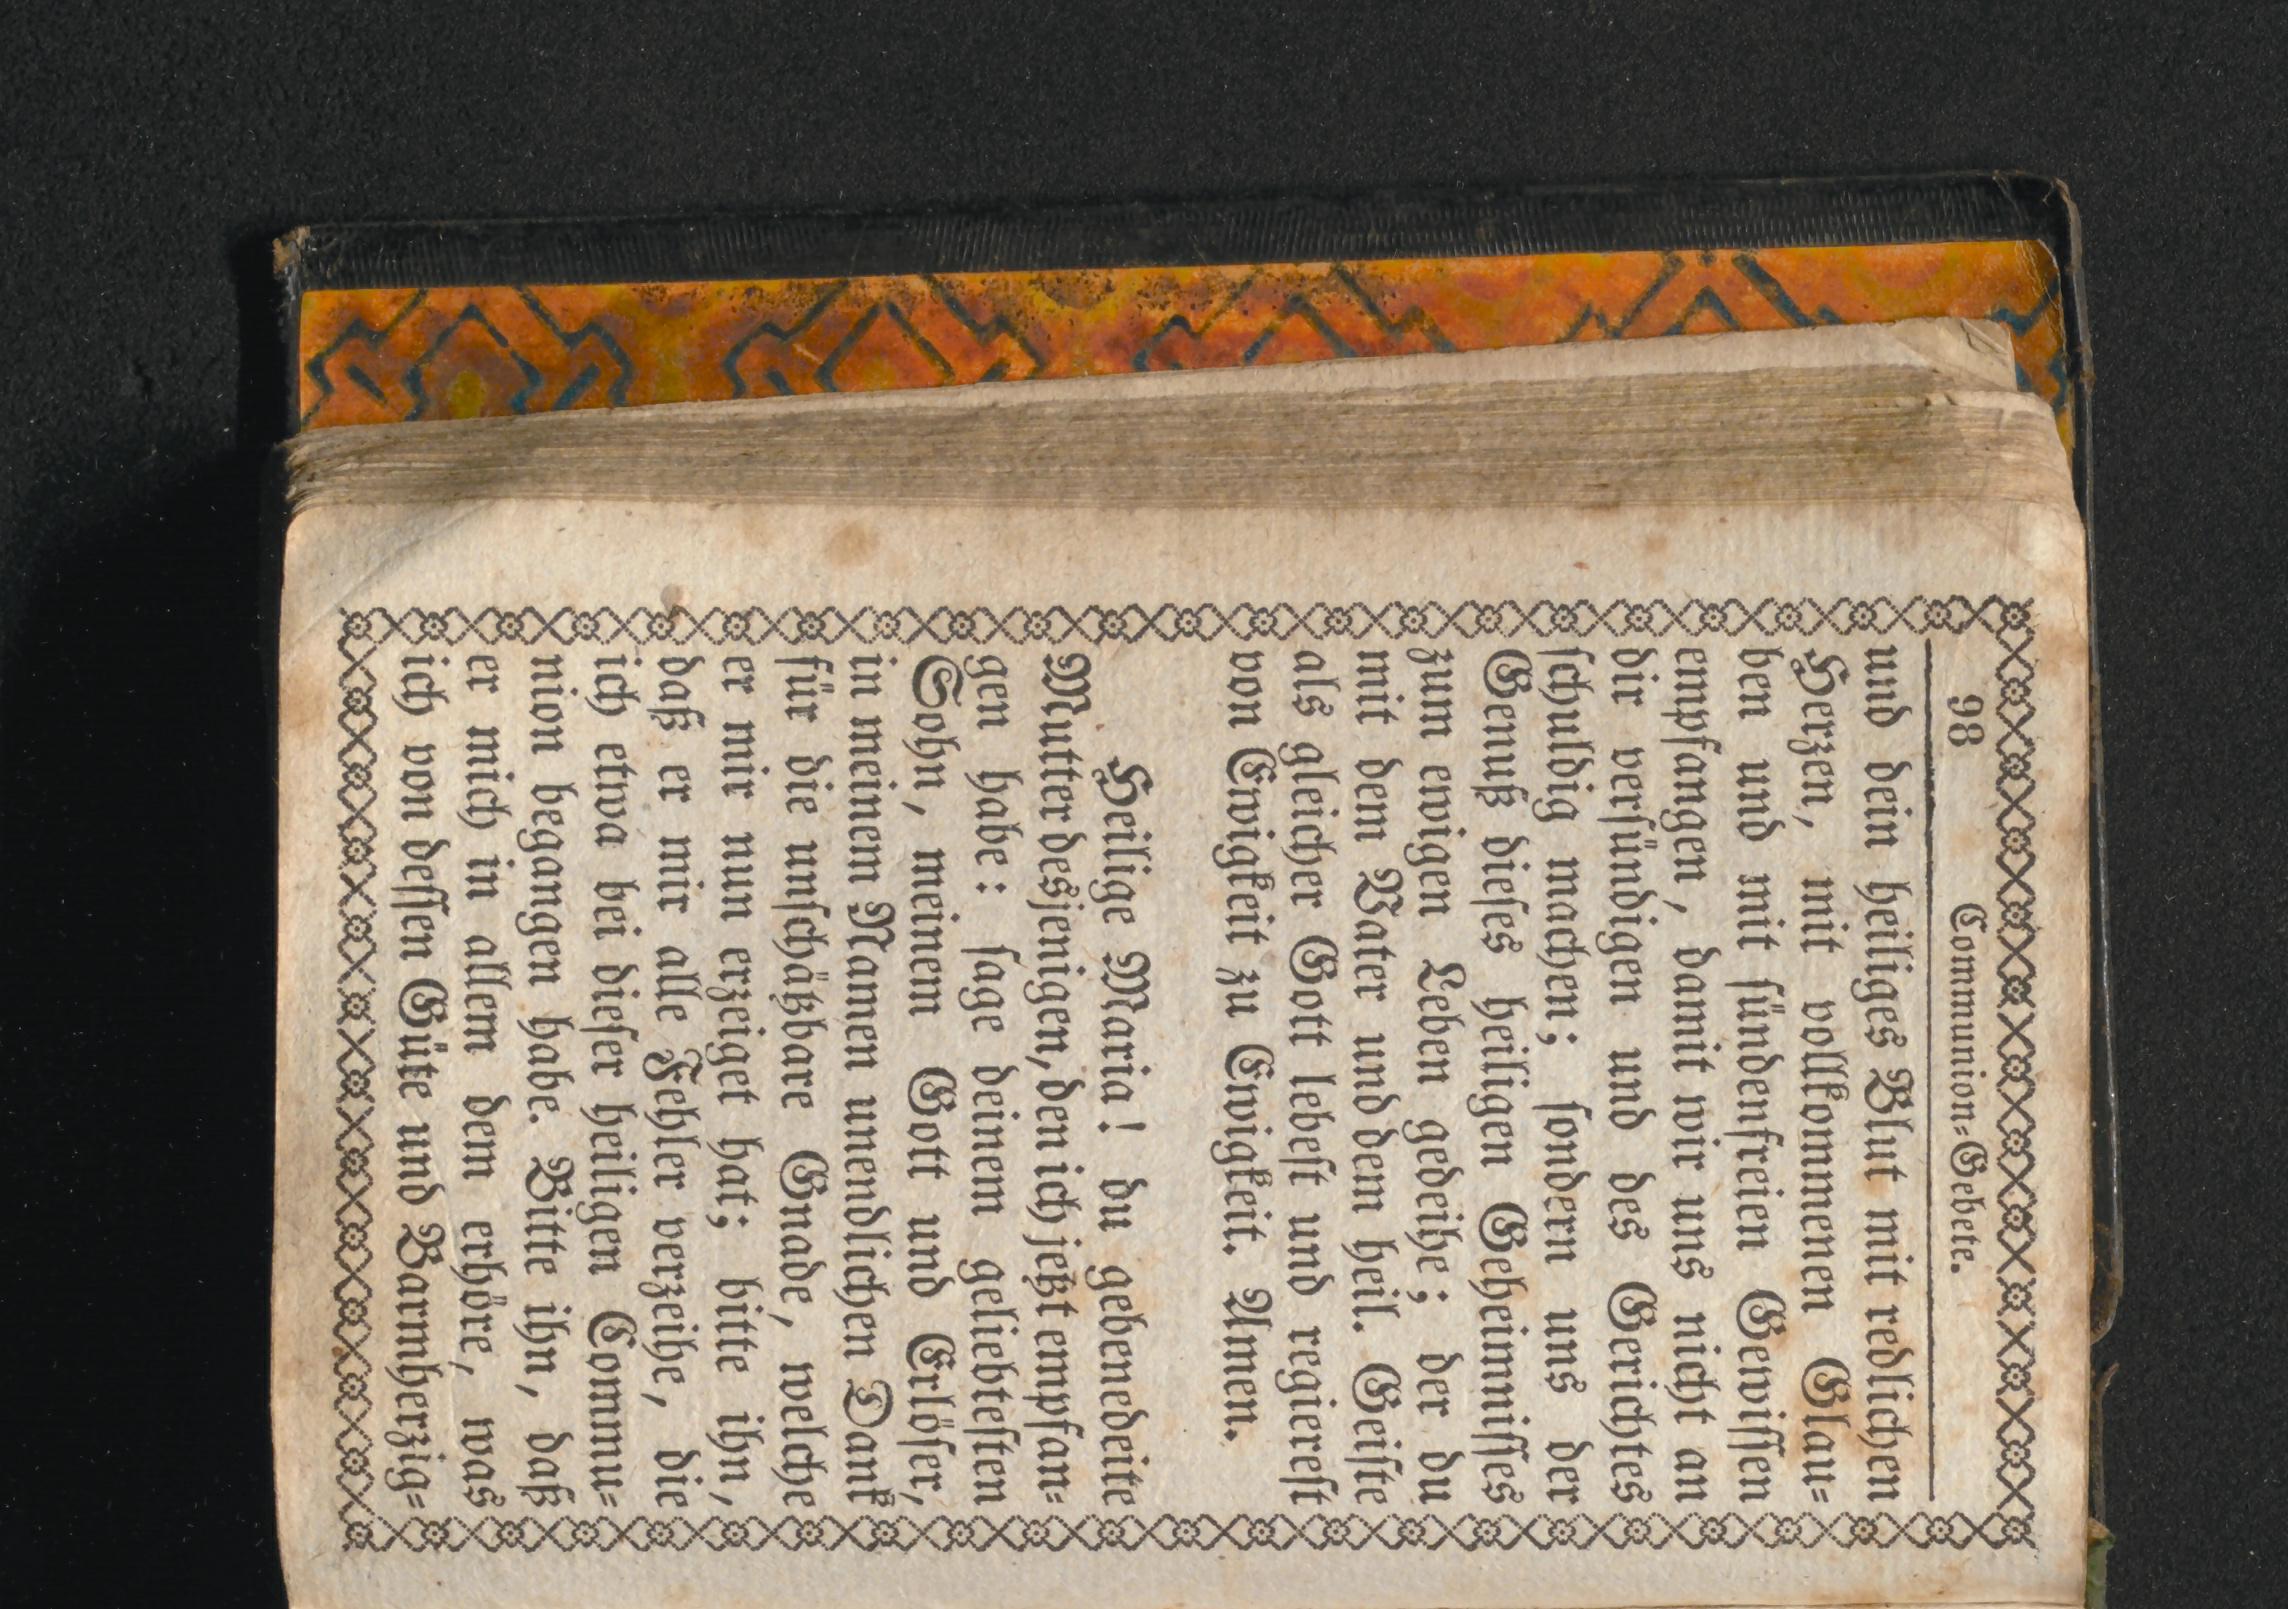 98 Communion=Gebete.
und dein heiliges Blut mit redlichen
Herzen, mit vollkommenen Glau=
ben und mit sündenfreien Gewissen
empfangen, damit wir uns nicht an
dir versündigen und des Gerichtes
schuldig machen; sondern uns der
Genuß dieses heiligen Geheimnisses
zum ewigen Leben gedeihe; der du
mit dem Vater und dem heil. Geiste
als gleicher Gott lebest und regierest
von Ewigkeit zu Ewigkeit. Amen.
Heilige Maria! du gebenedeite
Mutter desjenigen, den ich jetzt empfan=
gen habe: sage deinem geliebtesten
Sohn, meinem Gott und Erlöser,
in meinem Namen unendlichen Dank
für die unschätzbare Gnade, welche
er mir nun erzeiget hat; bitte ihn,
daß er mir alle Fehler verzeihe, die
ich etwa bei dieser heiligen Commu=
nion begangen habe. Bitte ihn, daß
er mich in allem dem erhöre, was
ich von dessen Güte und Barmherzig=